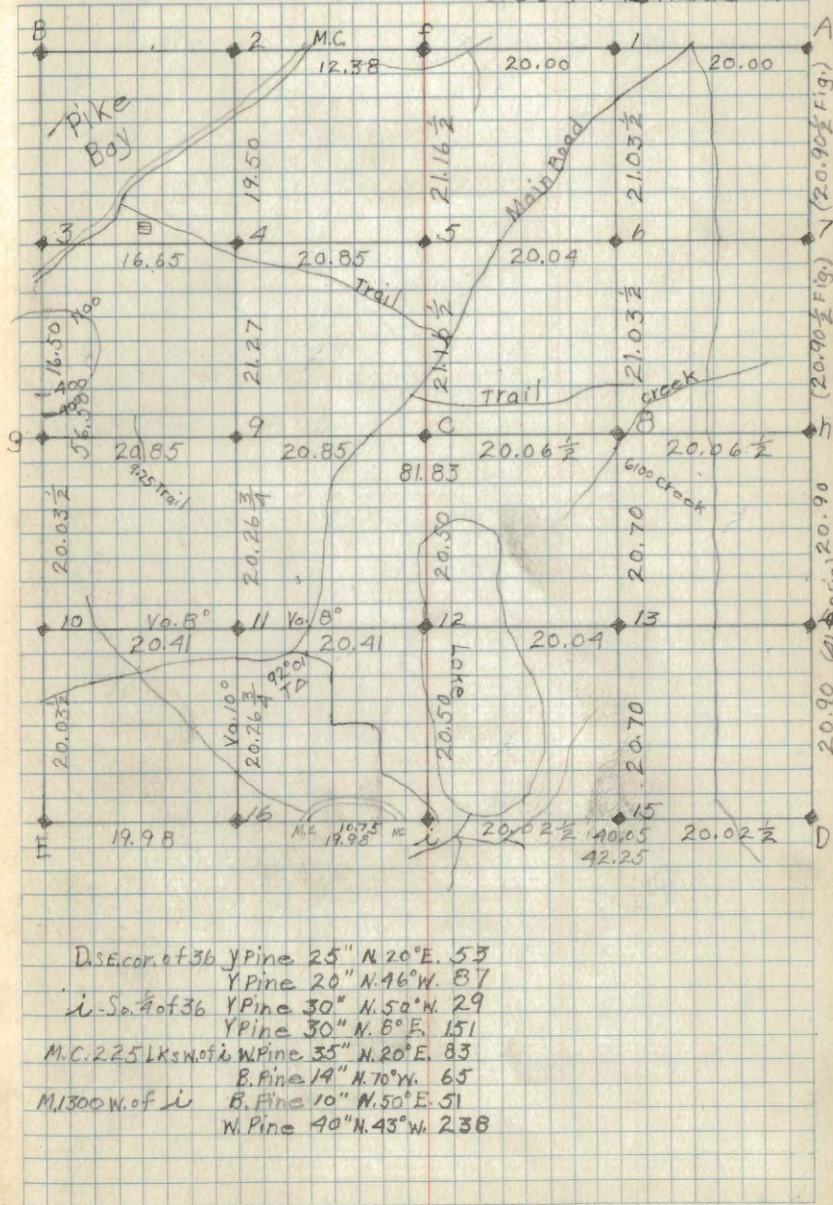 B 2 M.C. f 1 A
12.38 20.00 20.00
Pike
Bay
19.50
21.16 1/2
Main Road
21.03 1/2
(20.90 1/2 Fig.)
3 4 5 6 7
16.65 20.85 20.04
Trail
16.50
21.27
21.16 1/2
21.03 1/2
(20.90 1/2 Fig.)
Trail
creek
56.58
9 C 8 h
20.85 20.85 81.83 20.06 1/2 20.06 1/2
9.25 Trail
6100 creek
20.03 1/2
20.26 3/4
20.50
20.70
20.90
10 Va. 8° 11 Va. 8° 12 13
20.41 20.41 20.04
92°01'
Lake
20.03 1/2
Va. 10°
20.26 3/4
20.50
20.70
20.90
16 i 15 D
19.98 M.C. 10.75 MC 20.02 1/2 40.05 20.02 1/2
19.98 42.25
D. S.E. cor. of 36 Y Pine 25" N. 20° E. 53
Y Pine 20" N. 46° W. 87
i - So. 1/4 of 36 Y Pine 30" N. 50° W. 29
Y Pine 30" N. 8° E. 151
M.C. 225 Lks W. of i W. Pine 35" N. 20° E. 83
B. Pine 14" N. 70° W. 65
M. 1300 W. of i B. Pine 10" N. 50° E. 51
W. Pine 40" N. 43° W. 238